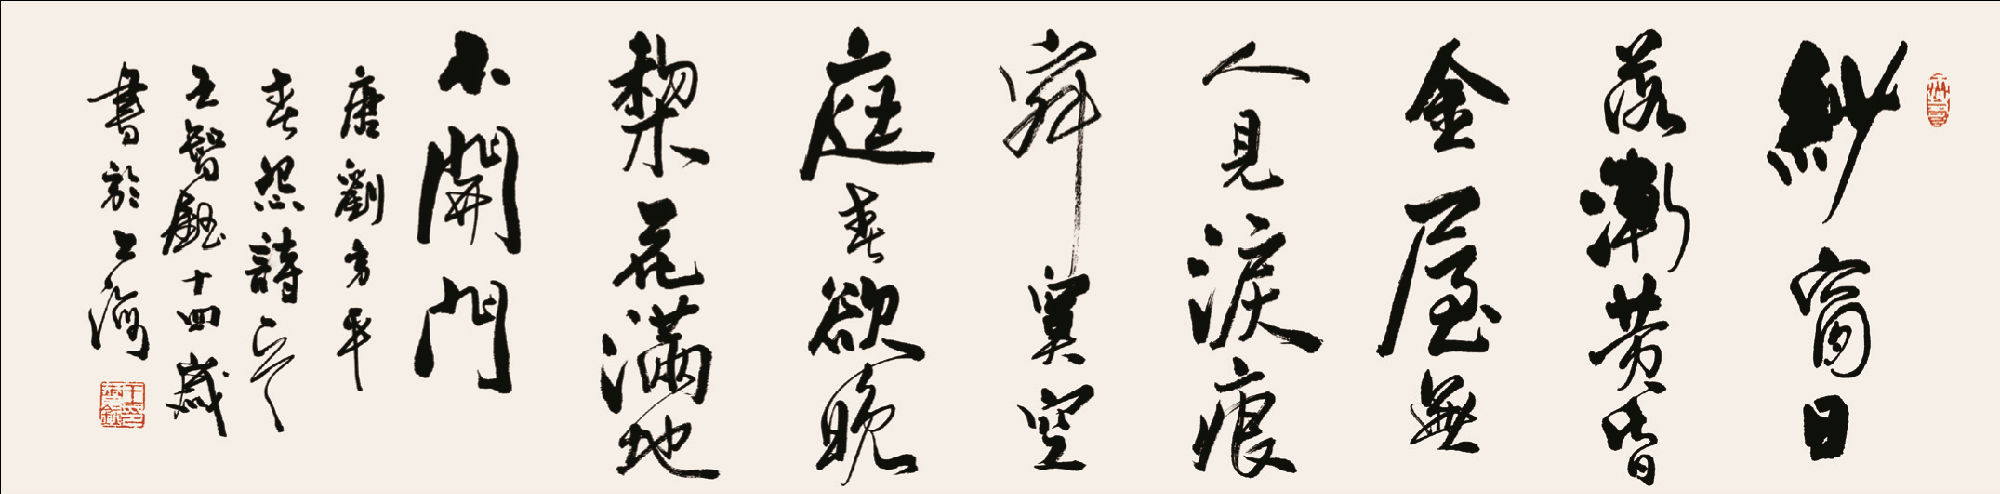 紗窗日
落漸黃昏
金屋無
人見淚痕
寂寞空
庭春欲晚
梨花滿地
不開門
唐劉方平
春怨詩一首
王智十四歲
書於上海